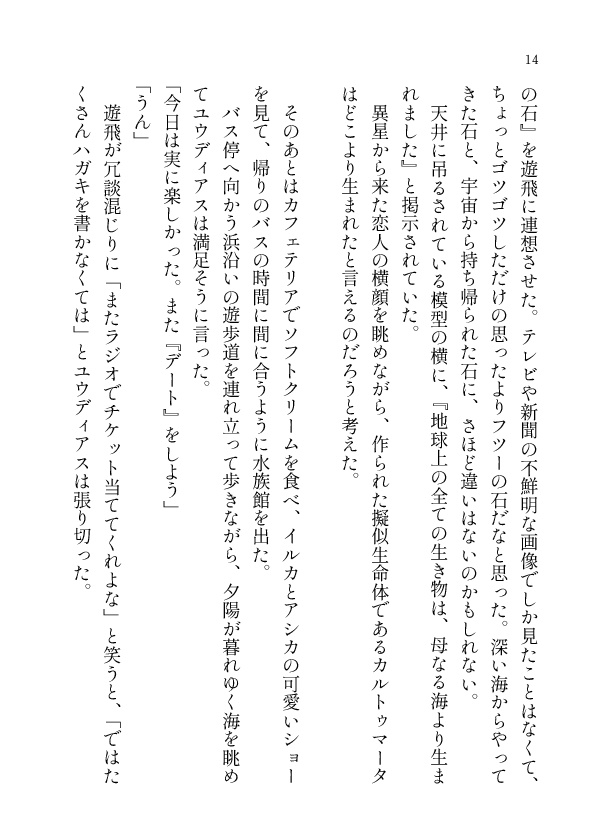 14
の石』を遊飛に連想させた。テレビや新聞の不鮮明な画像でしか見たことはなくて、
ちょっとゴツゴツしただけの思ったよりフツーの石だなと思った。深い海からやって
きた石と、宇宙から持ち帰られた石に、さほど違いはないのかもしれない。
天井に吊るされている模型の横に、『地球上の全ての生き物は、母なる海より生ま
れました』と掲示されていた。
異星から来た恋人の横顔を眺めながら、作られた擬似生命体であるカルトゥマータ
はどこより生まれたと言えるのだろうと考えた。
そのあとはカフェテリアでソフトクリームを食べ、イルカとアシカの可愛いショー
を見て、帰りのバスの時間に間に合うように水族館を出た。
バス停へ向かう浜沿いの遊歩道を連れ立って歩きながら、夕陽が暮れゆく海を眺め
てユウディアスは満足そうに言った。
「今日は実に楽しかった。また『デート』をしよう」
「うん」
遊飛が冗談混じりに「またラジオでチケット当ててくれよな」と笑うと、「ではた
くさんハガキを書かなくては」とユウディアスは張り切った。